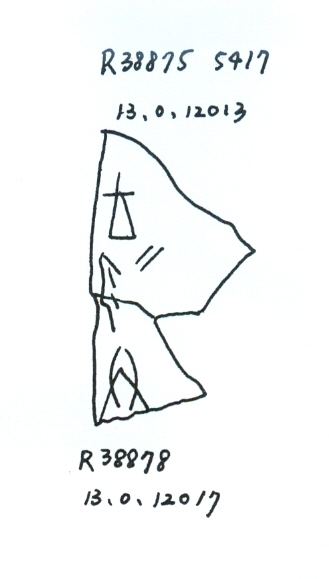 R38875 5417
13.0.12013
R38878
13.0.12017